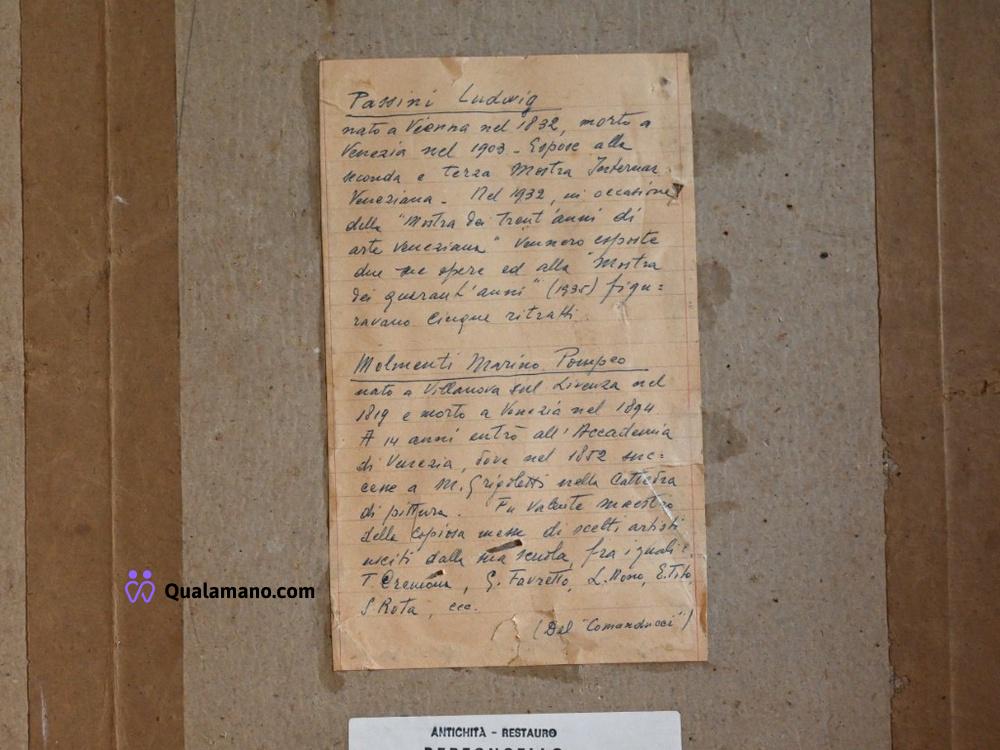 Passini Ludwig
nato a Vienna nel 1832, morto a
Venezia nel 1903 - Espose alla
seconda e terza Mostra Internaz.
Veneziana - Nel 1932, in occasione
della "Mostra dei trent'anni di
arte veneziana" vennero esposte
due sue opere ed alla "Mostra
dei quarant'anni" (1935) figu=
ravano cinque ritratti.
Molmenti Marino Pompeo
nato a Villanova sul Livenza nel
1819 e morto a Venezia nel 1894.
A 14 anni entrò all'Accademia
di Venezia, dove nel 1852 suc=
cesse a M. Grigoletti nella Cattedra
di pittura. Fu valente maestro
della copiosa messe di scelti artisti
usciti dalla sua scuola, fra i quali:
T. Cremona, G. Favretto, L. Nono, E. Tito,
S. Rota, ecc.
(Dal "Comanducci")
Qualamano.com
ANTICHITÀ - RESTAURO